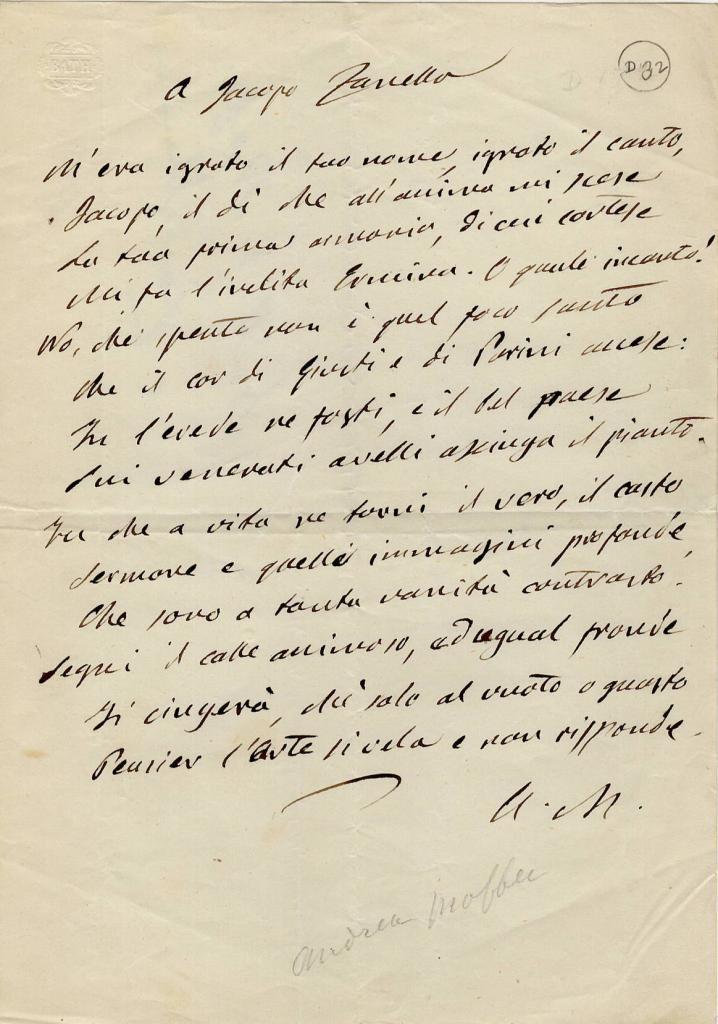 BATH
D 32
A Jacopo Zanella
M'era ignoto il tuo nome, ignoto il canto,
Jacopo, il dì che all'anima mi scese
La tua prima armonia, di cui cortese
Mi fu l'inclita Ermina. O quale incanto!
No, che spento non è quel foco santo
Che il cor di Giusti e di Parini accese:
Tu l'erede ne fosti, e il bel paese
Sui venerati avelli asciuga il pianto.
Tu che a vita ne torni il vero, il casto
Sermone e quelle immagini profonde,
Che sono a tanta vanità contrasto.
Segui il calle animoso, ed ugual fronde
Ti cingerà, chè solo al vuoto o guasto
Pensier l'Arte si vela e non risponde.
A. M.
Andrea Maffei